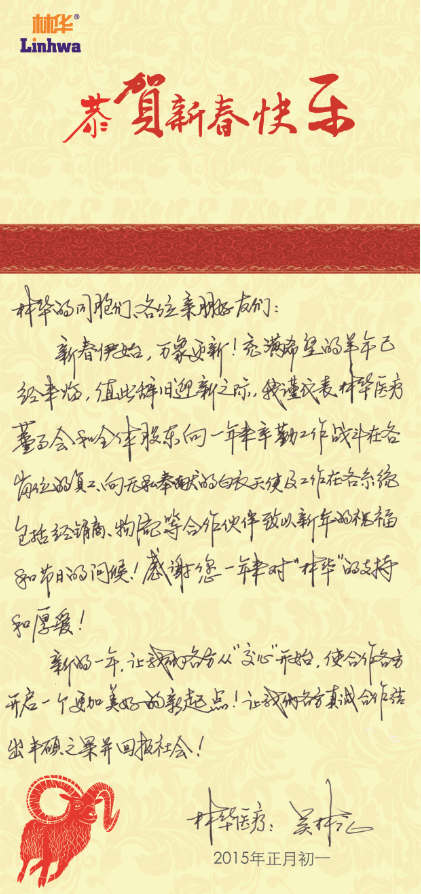 林华®
Linhwa
恭贺新春快乐
林华的同胞们、各位亲朋好友们：
新春伊始，万象更新！充满希望的羊年已
经来临，值此辞旧迎新之际，我谨代表林华医疗
董事会和全体股东向一年来辛勤工作战斗在各
岗位的员工、向无私奉献的白衣天使及工作在各系统
包括经销商、物流等合作伙伴致以新年的祝福
和节日的问候！感谢您一年来对“林华”的支持
和厚爱！
新的一年，让我们各方从“交心”开始，使合作各方
开启一个更加美好的新起点！让我们各方真诚合作结
出丰硕之果并回报社会！
林华医疗：吴林元
2015年正月初一